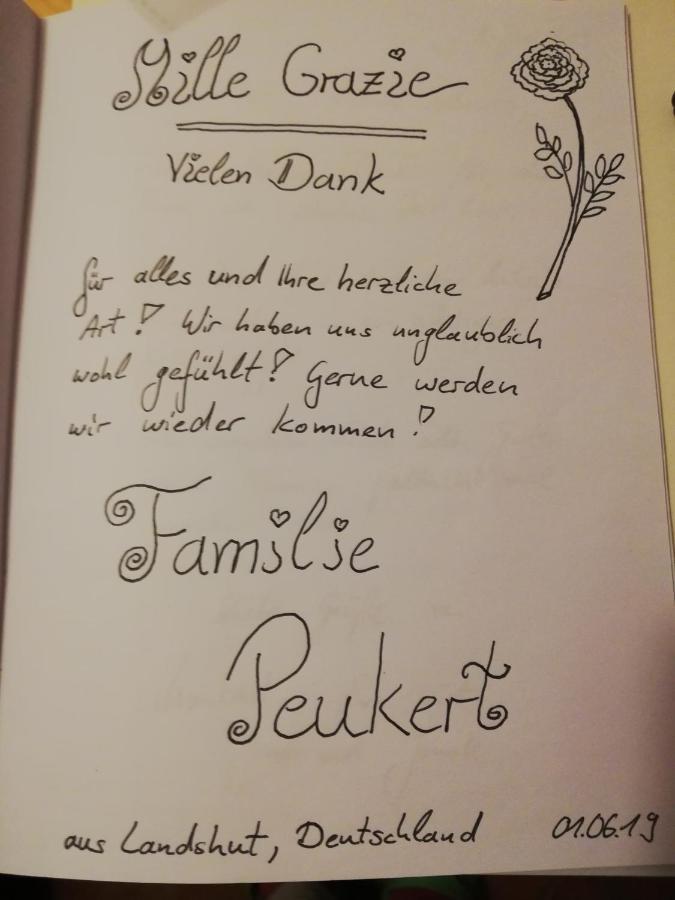 Mille Grazie
Vielen Dank
für alles und Ihre herzliche
Art! Wir haben uns unglaublich
wohl gefühlt! Gerne werden
wir wieder kommen!
Familie
Peukert
aus Landshut, Deutschland 01.06.19